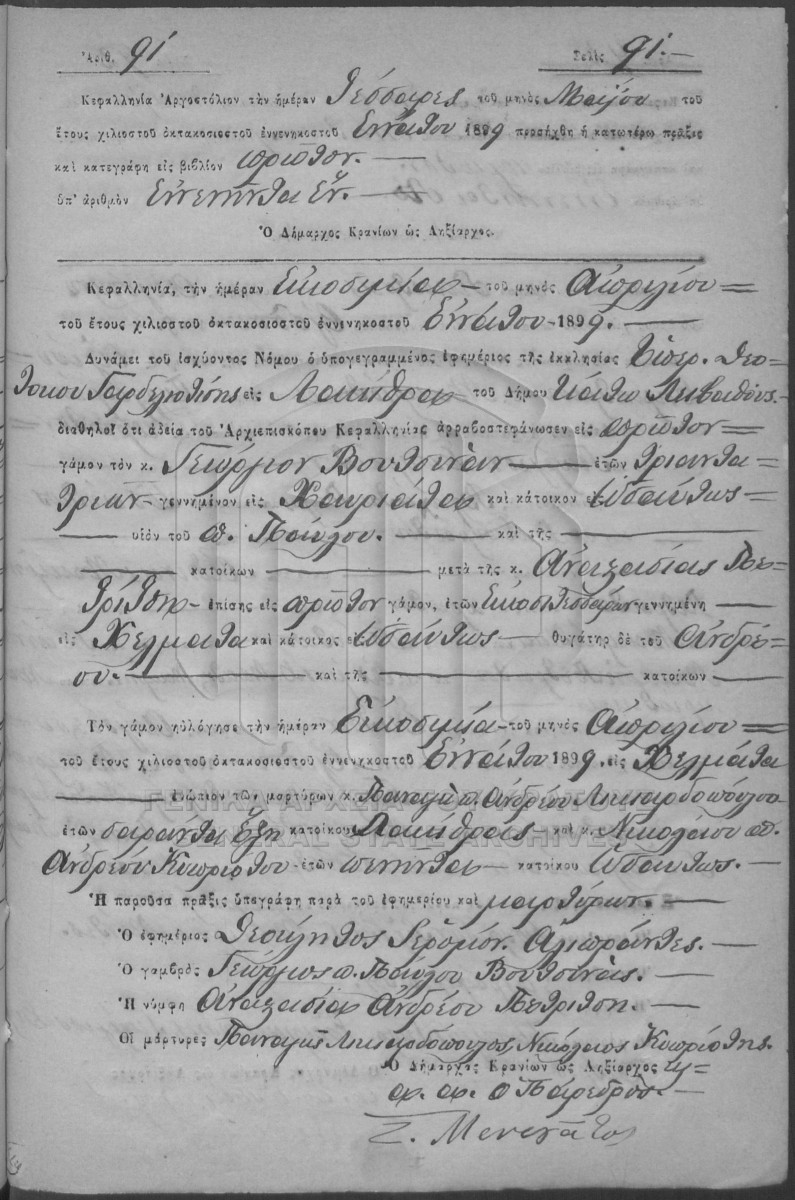 Ἀριθ. 91 Σελὶς 91.—
Κεφαλληνία Ἀργοστόλιον τὴν ἡμέραν Τέσσαρες τοῦ μηνὸς Μαΐου τοῦ
ἔτους χιλιοστοῦ ὀκτακοσιοστοῦ ἐννενηκοστοῦ Ἐννάτου 1899 προσήχθη ἡ κατωτέρω πρᾶξις
καὶ κατεγράφη εἰς βιβλίον πρῶτον.—
ὑπ' ἀριθμὸν Ἐννενῆντα ἕν.—
Ὁ Δήμαρχος Κρανίων ὡς Ληξίαρχος.
Κεφαλληνία, τὴν ἡμέραν Εἰκοσιμίαν— τοῦ μηνὸς Ἀπριλίου
τοῦ ἔτους χιλιοστοῦ ὀκτακοσιοστοῦ ἐννενηκοστοῦ Ἐννάτου—1899.—
Δυνάμει τοῦ ἰσχύοντος Νόμου ὁ ὑπογεγραμμένος ἐφημέριος τῆς ἐκκλησίας Ὑπερ. Θεο-
τόκου Γαρδελιοτίσης εἰς Λακήθραν— τοῦ Δήμου Κάτω Λειβαθοῦς.
διαθηλοῖ ὅτι ἀδεία τοῦ Ἀρχιεπισκόπου Κεφαλληνίας ἀρραβοστεφάνωσεν εἰς πρῶτον
γάμον τὸν κ. Γεώργιον Βουτσινᾶν— ἐτῶν τριαντα-
τριῶν— γεννημένον εἰς Χαυριάτα καὶ κάτοικον εἰς ὡσαύτως—
— υἱὸν τοῦ π. Παύλου.— καὶ τῆς —
— κατοίκων — μετὰ τῆς κ. Ἀναστασίας Πε-
τρίτση— ἐπίσης εἰς πρῶτον γάμον, ἐτῶν Εἰκοσιτεσσάρων γεννημένη —
εἰς Χελμάτα καὶ κάτοικος εἰς ὡσαύτως— θυγάτηρ δὲ τοῦ Ἀνδρέ-
ου.— καὶ τῆς — κατοίκων —
Τὸν γάμον ηὐλόγησε τὴν ἡμέραν Εἰκοσιμία— τοῦ μηνὸς Ἀπριλίου
τοῦ ἔτους χιλιοστοῦ ὀκτακοσιοστοῦ ἐννενηκοστοῦ Ἐννάτου 1899. εἰς Χελμάτα
— ἐνώπιον τῶν μαρτύρων κ. Παναγῆ π. Ἀνδρέου Λυκαρδοπούλου
ἐτῶν σαράντα ἕξη κατοίκου Λακήθρας— καὶ κ. Νικολάου π.
Ἀνδρέου Κυπριώτου— ἐτῶν πενῆντα— κατοίκου ὡσαύτως.—
Ἡ παροῦσα πρᾶξις ὑπεγράφη παρὰ τοῦ ἐφημερίου καὶ μαρτύρων.—
Ὁ ἐφημέριος Θεοίλητος Ἱερομον. Ἀλιπράντες.—
Ὁ γαμβρὸς Γεώργιος π. Παύλου Βουτσινᾶς.—
Ἡ νύμφη Ἀναστασία Ἀνδρέου Πετρίτση.—
Οἱ μάρτυρες Παναγῆς Λυκαρδόπουλος, Νικόλαος Κυπριώτης.
Ὁ Δήμαρχος Κρανίων ὡς Ληξίαρχος
ὁ Πάρεδρος.—
Σ. Μενεγάτος
ΓΕΝΙΚΑ ΑΡΧΕΙΑ ΤΟΥ ΚΡΑΤΟΥΣ
GENERAL STATE ARCHIVES